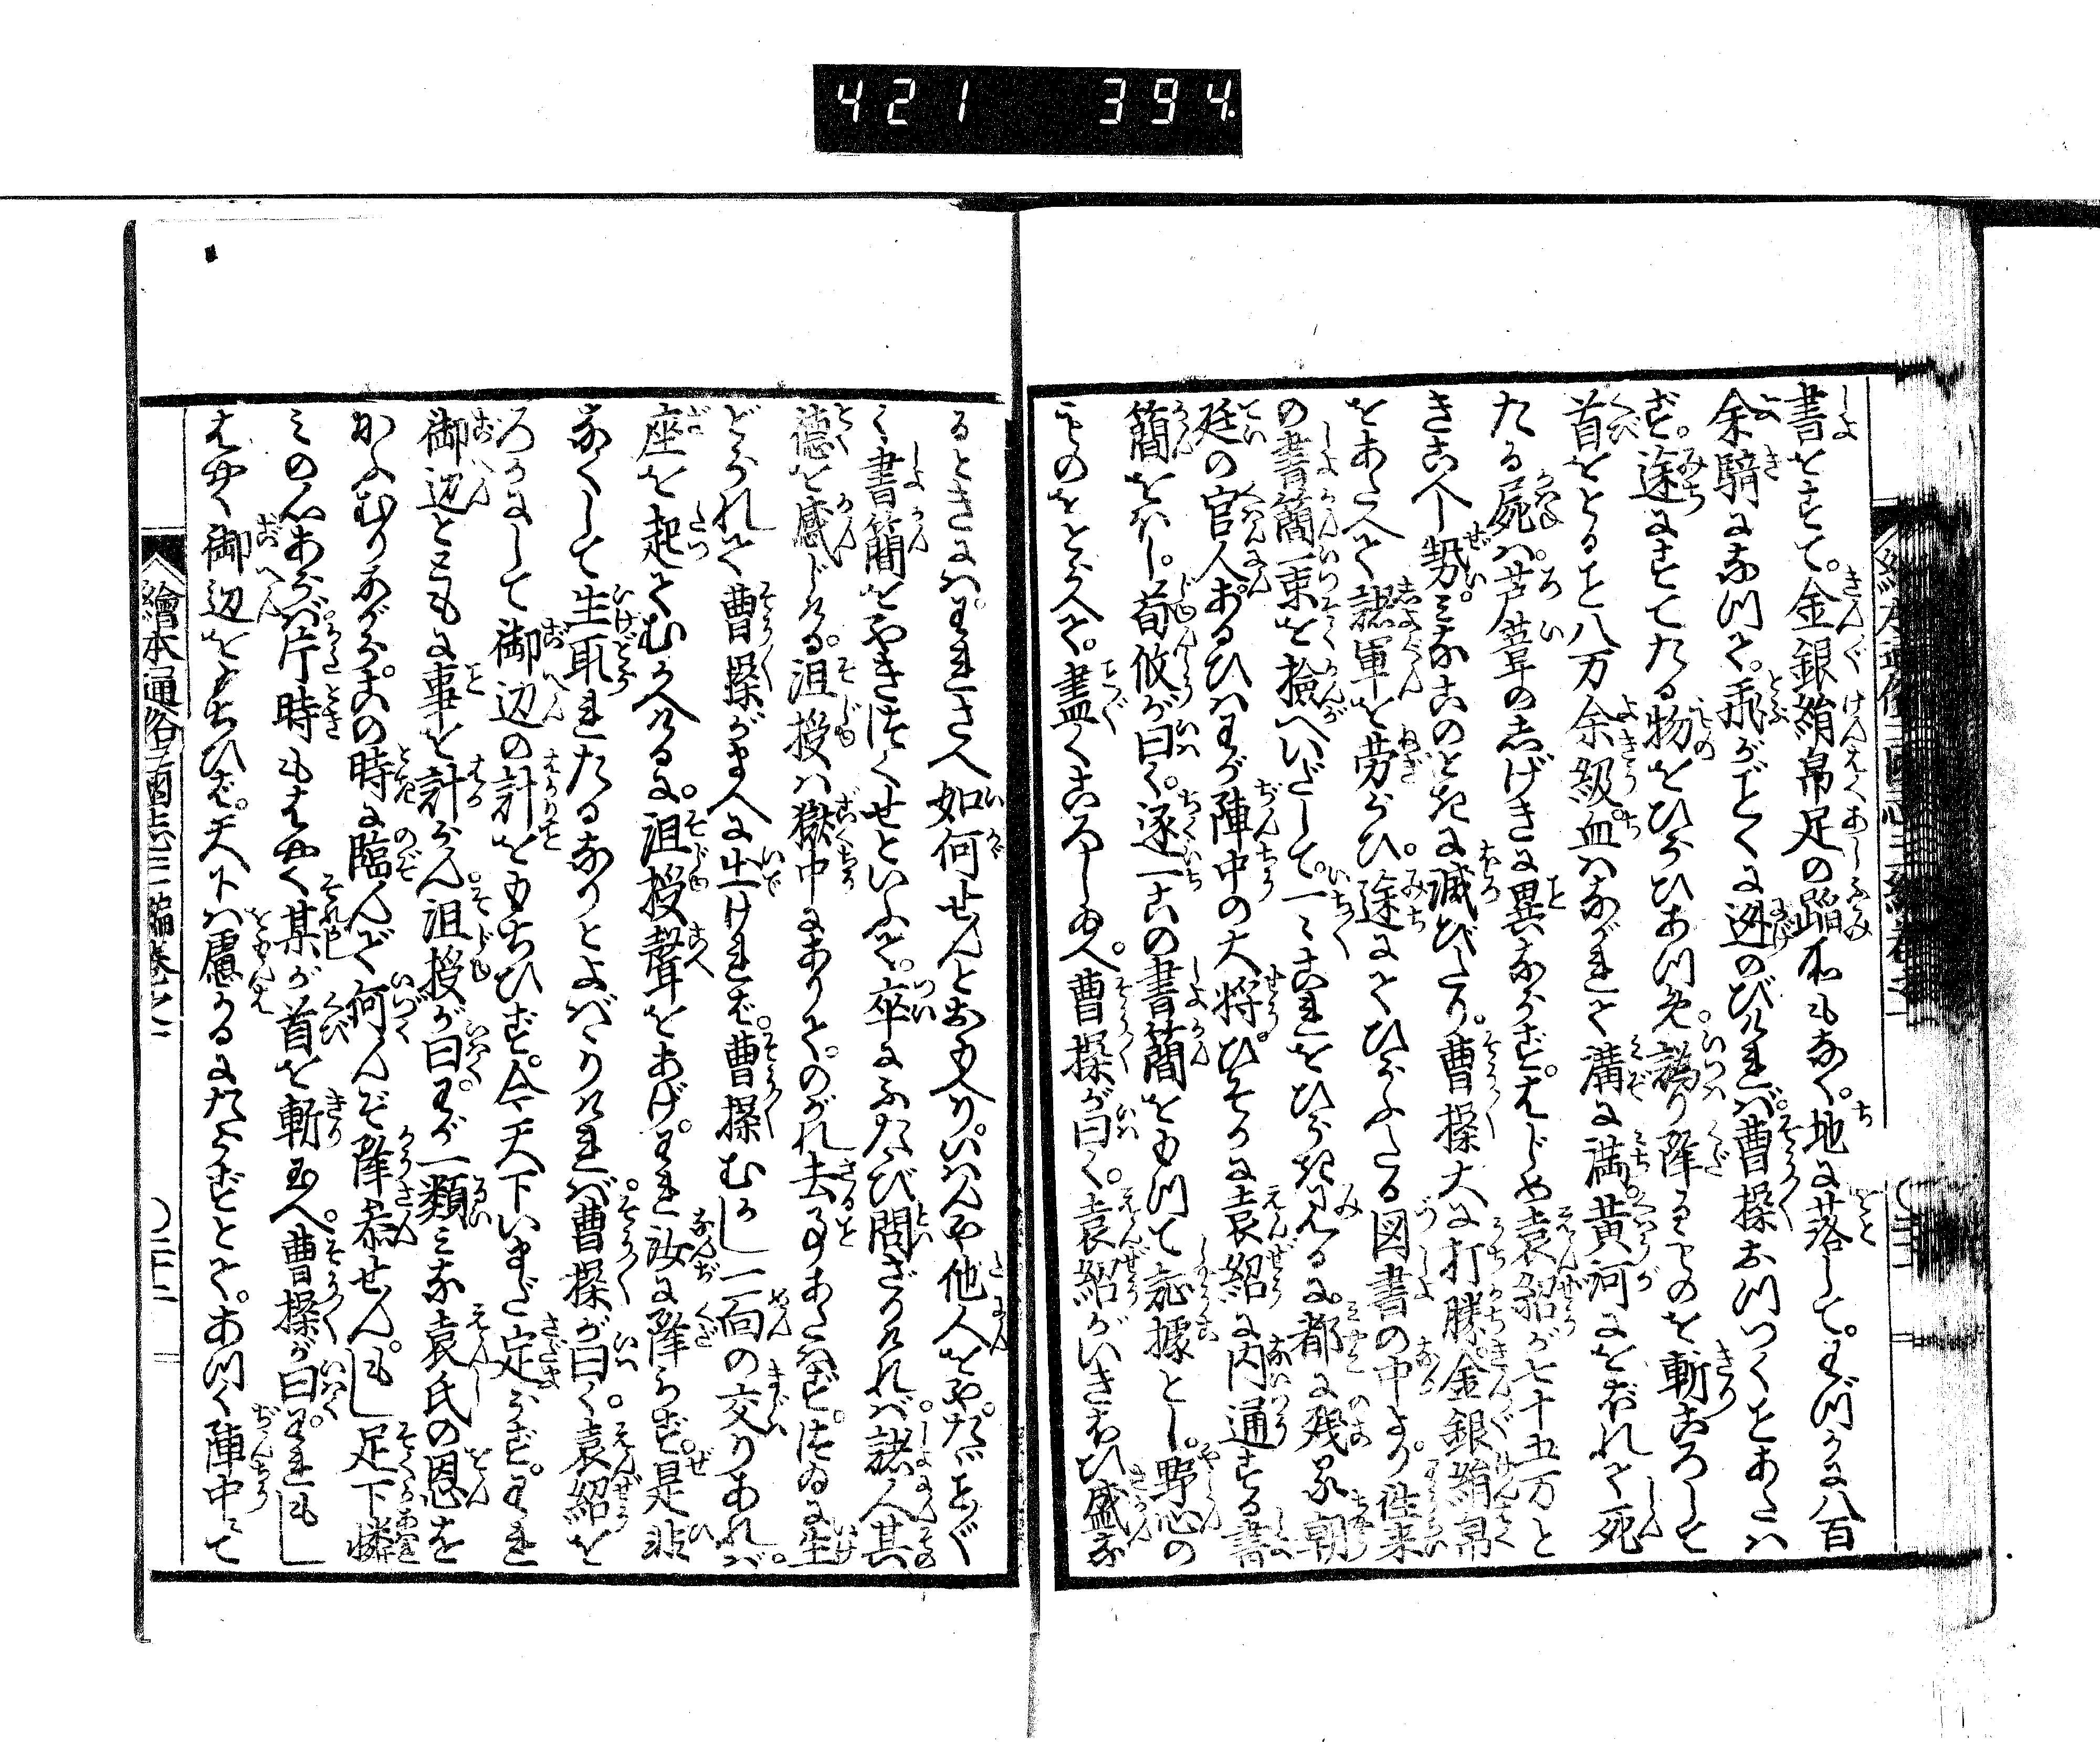 421 394.
書をすて。金銀絹帛足の蹈所もなく。地に落して。わづかに八百
余騎になりて。飛がごとくに迯のびければ。曹操おひつくことあたは
ず。途にすてたる物をひろひあつめ。偽り降るものを斬ころして
首をとること八万余級。血はながれて溝に満。黄河におぼれて死
たる屍は。芦葦のしげきに異ならず。はじめ袁紹が七十五万と
きこへし勢。みなこのときに滅びたり。曹操大に打勝。金銀絹帛
をあたへて諸軍を労ひ。途にてひろふたる図書の中より。往来
の書簡一束を撿へいだして。一々これをひらき見るに。都に残る朝
廷の官人。あるひはわが陣中の大将。ひそかに袁紹に内通する書
簡おほし。荀攸が曰く。逐一この書簡をもつて証拠とし。野心の
ものをとらへて。盡くころし給へ。曹操が曰く。袁紹がいきほひ盛な
るときには。われさへ如何せんとおもへり。いはんや他人をや。たゞことごと
く書簡をやき捨よといふて。卒にふたゝび問ざりければ。諸人其
徳を感じける。沮授は獄中にありて。のがれ去ることあたはず。つゐに生
どられて曹操がまへに出ければ。曹操むかし一面の交りあれば。
座を起てむかへけるに。沮授聲をあげ。われ汝に降らず。是非
なくして生取れたるなりとよばゝりければ。曹操が曰く。袁紹を
ろかにして御辺の計をもちひず。今天下いまだ定らず。われ
御辺とともに事を計らん。沮授が曰。わが一類みな袁氏の恩を
かふむりながら。この時に臨んで何んぞ降参せん。もし足下憐
みの心あらば。片時もはやく某が首を斬玉へ。曹操が曰。われもし
はやく御辺をもちひば。天下は慮るにたらずとて。あつく陣中にて
繪本通俗三國志三編巻之二
〇二十二